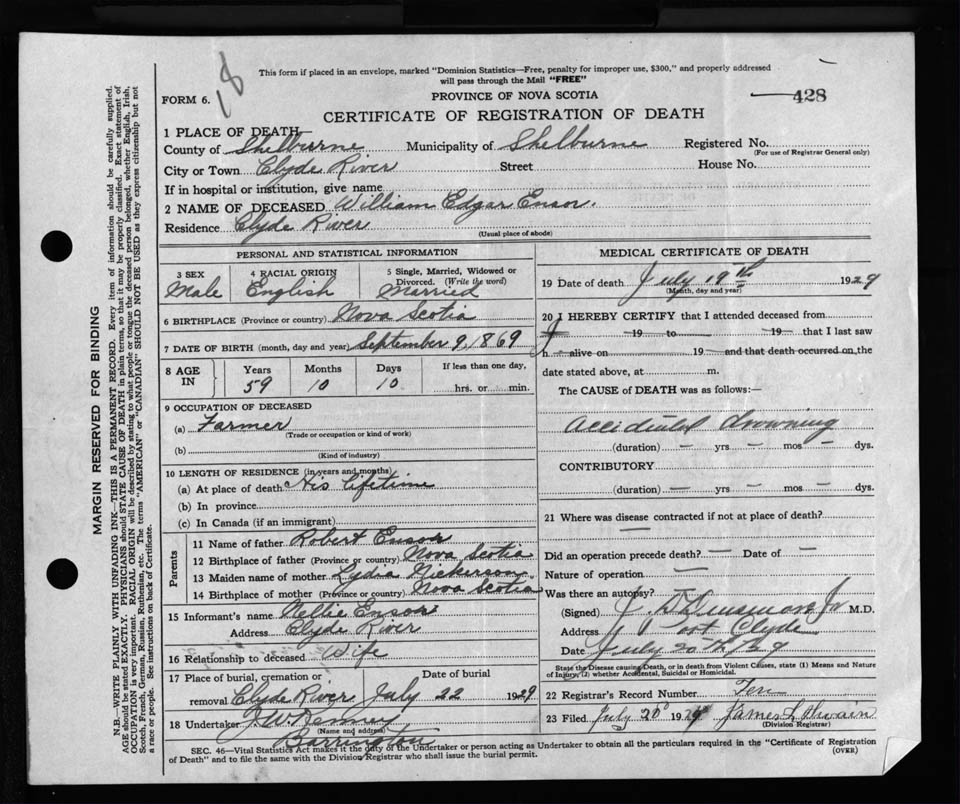 18
This form if placed in an envelope, marked "Dominion Statistics—Free, penalty for improper use, $300," and properly addressed
will pass through the Mail "FREE"
FORM 6.
PROVINCE OF NOVA SCOTIA
428
CERTIFICATE OF REGISTRATION OF DEATH
1 PLACE OF DEATH—
County of Shelburne Municipality of Shelburne Registered No.
(For use of Registrar General only)
City or Town Clyde River Street House No.
If in hospital or institution, give name
2 NAME OF DECEASED William Edgar Ensor.
Residence Clyde River
(Usual place of abode)
PERSONAL AND STATISTICAL INFORMATION
3 SEX 4 RACIAL ORIGIN 5 Single, Married, Widowed or
Divorced. (Write the word)
Male English Married
6 BIRTHPLACE (Province or country) Nova Scotia
7 DATE OF BIRTH (month, day and year) September 9, 1869
8 AGE IN Years Months Days If less than one day,
59 10 10 hrs. or min.
9 OCCUPATION OF DECEASED
(a) Farmer
(Trade or occupation or kind of work)
(b)
(Kind of industry)
10 LENGTH OF RESIDENCE (in years and months)
(a) At place of death His lifetime
(b) In province
(c) In Canada (if an immigrant)
Parents
11 Name of father Robert Ensor
12 Birthplace of father (Province or country) Nova Scotia
13 Maiden name of mother Lydia Nickerson
14 Birthplace of mother (Province or country) Nova Scotia
15 Informant's name Nellie Ensor
Address Clyde River
16 Relationship to deceased Wife
17 Place of burial, cremation or Date of burial
removal Clyde River July 22 1929
18 Undertaker J. W. Kenney
(Name and address)
Barrington
MEDICAL CERTIFICATE OF DEATH
19 Date of death July 19th 1929
(Month, day and year)
20 I HEREBY CERTIFY that I attended deceased from
19 to 19 that I last saw
h alive on 19 and that death occurred on the
date stated above, at m.
The CAUSE of DEATH was as follows:—
Accidental drowning
(duration) — yrs — mos — dys.
CONTRIBUTORY
(duration) — yrs. — mos — dys.
21 Where was disease contracted if not at place of death?
—
Did an operation precede death? — Date of —
Nature of operation —
Was there an autopsy?
(Signed) Jr M.D.
Address Port Clyde
Date July 20th/29
State the Disease causing Death, or in death from Violent Causes, state (1) Means and Nature
of Injury; (2) whether Accidental, Suicidal or Homicidal.
22 Registrar's Record Number Ten
23 Filed July 20 1929 James
(Division Registrar)
SEC. 46—Vital Statistics Act makes it the duty of the Undertaker or person acting as Undertaker to obtain all the particulars required in the "Certificate of Registration
of Death" and to file the same with the Division Registrar who shall issue the burial permit.
(OVER)
MARGIN RESERVED FOR BINDING
N.B.—WRITE PLAINLY WITH UNFADING INK—THIS IS A PERMANENT RECORD. Every item of information should be carefully supplied.
AGE should be stated EXACTLY. PHYSICIANS should STATE CAUSE OF DEATH in plain terms, so that it may be properly classified. Exact statement of
OCCUPATION is very important. RACIAL ORIGIN will be described by stating to what people or tongue the deceased person belonged, whether English, Irish,
Scotch, French, German, Russian, Ruthenian, etc. The terms "AMERICAN" or "CANADIAN" SHOULD NOT BE USED as they express citizenship but not
a race or people. See instructions on back of Certificate.